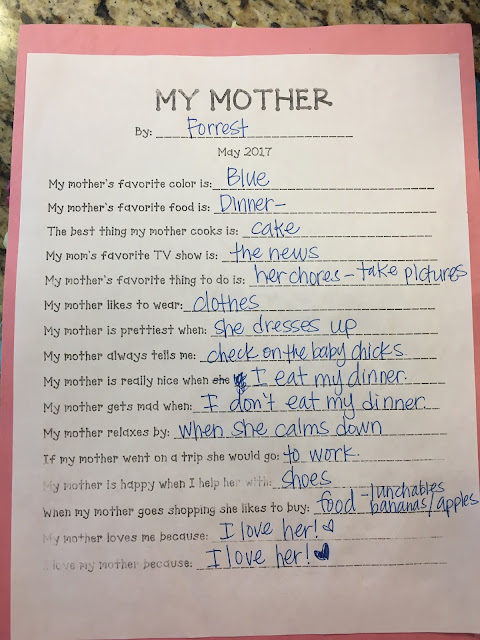 MY MOTHER
By: Forrest
May 2017
My mother's favorite color is: Blue
My mother's favorite food is: Dinner-
The best thing my mother cooks is: cake
My mom's favorite TV show is: the news
My mother's favorite thing to do is: her chores - take pictures
My mother likes to wear: clothes
My mother is prettiest when: she dresses up
My mother always tells me: check on the baby chicks
My mother is really nice when she I eat my dinner.
My mother gets mad when: I don't eat my dinner.
My mother relaxes by: when she calms down
If my mother went on a trip she would go: to work.
My mother is happy when I help her with: shoes
When my mother goes shopping she likes to buy: food - lunchables
bananas/apples
My mother loves me because: I love her!
I love my mother because: I love her!